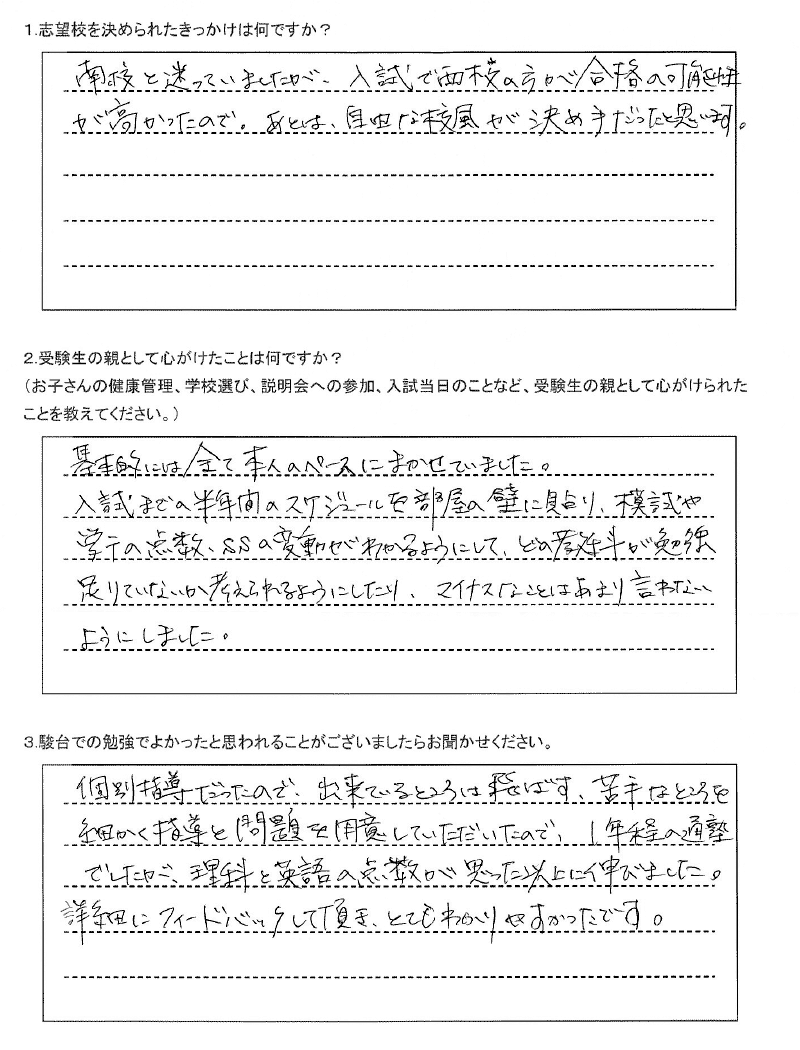 1.志望校を決められたきっかけは何ですか？
南校と迷っていましたが、入試で西校の方が合格の可能性
が高かったので。あとは、自由な校風が決め手だったと思います。
2.受験生の親として心がけたことは何ですか？
（お子さんの健康管理、学校選び、説明会への参加、入試当日のことなど、受験生の親として心がけられた
ことを教えてください。）
基本的には全て本人のペースにまかせていました。
入試までの半年間のスケジュールを部屋の壁に貼り、模試や
学テの点数、SSの変動がわかるようにして、どの教科が勉強
足りていないか考えられるようにしたり、マイナスなことはあまり言わない
ようにしました。
3.駿台での勉強でよかったと思われることがございましたらお聞かせください。
個別指導だったので、出来ているところは飛ばす、苦手なところを
細かく指導と問題を用意していただいたので、1年程の通塾
でしたが、理科と英語の点数が思った以上に伸びました。
詳細にフィードバックして頂き、とてもわかりやすかったです。